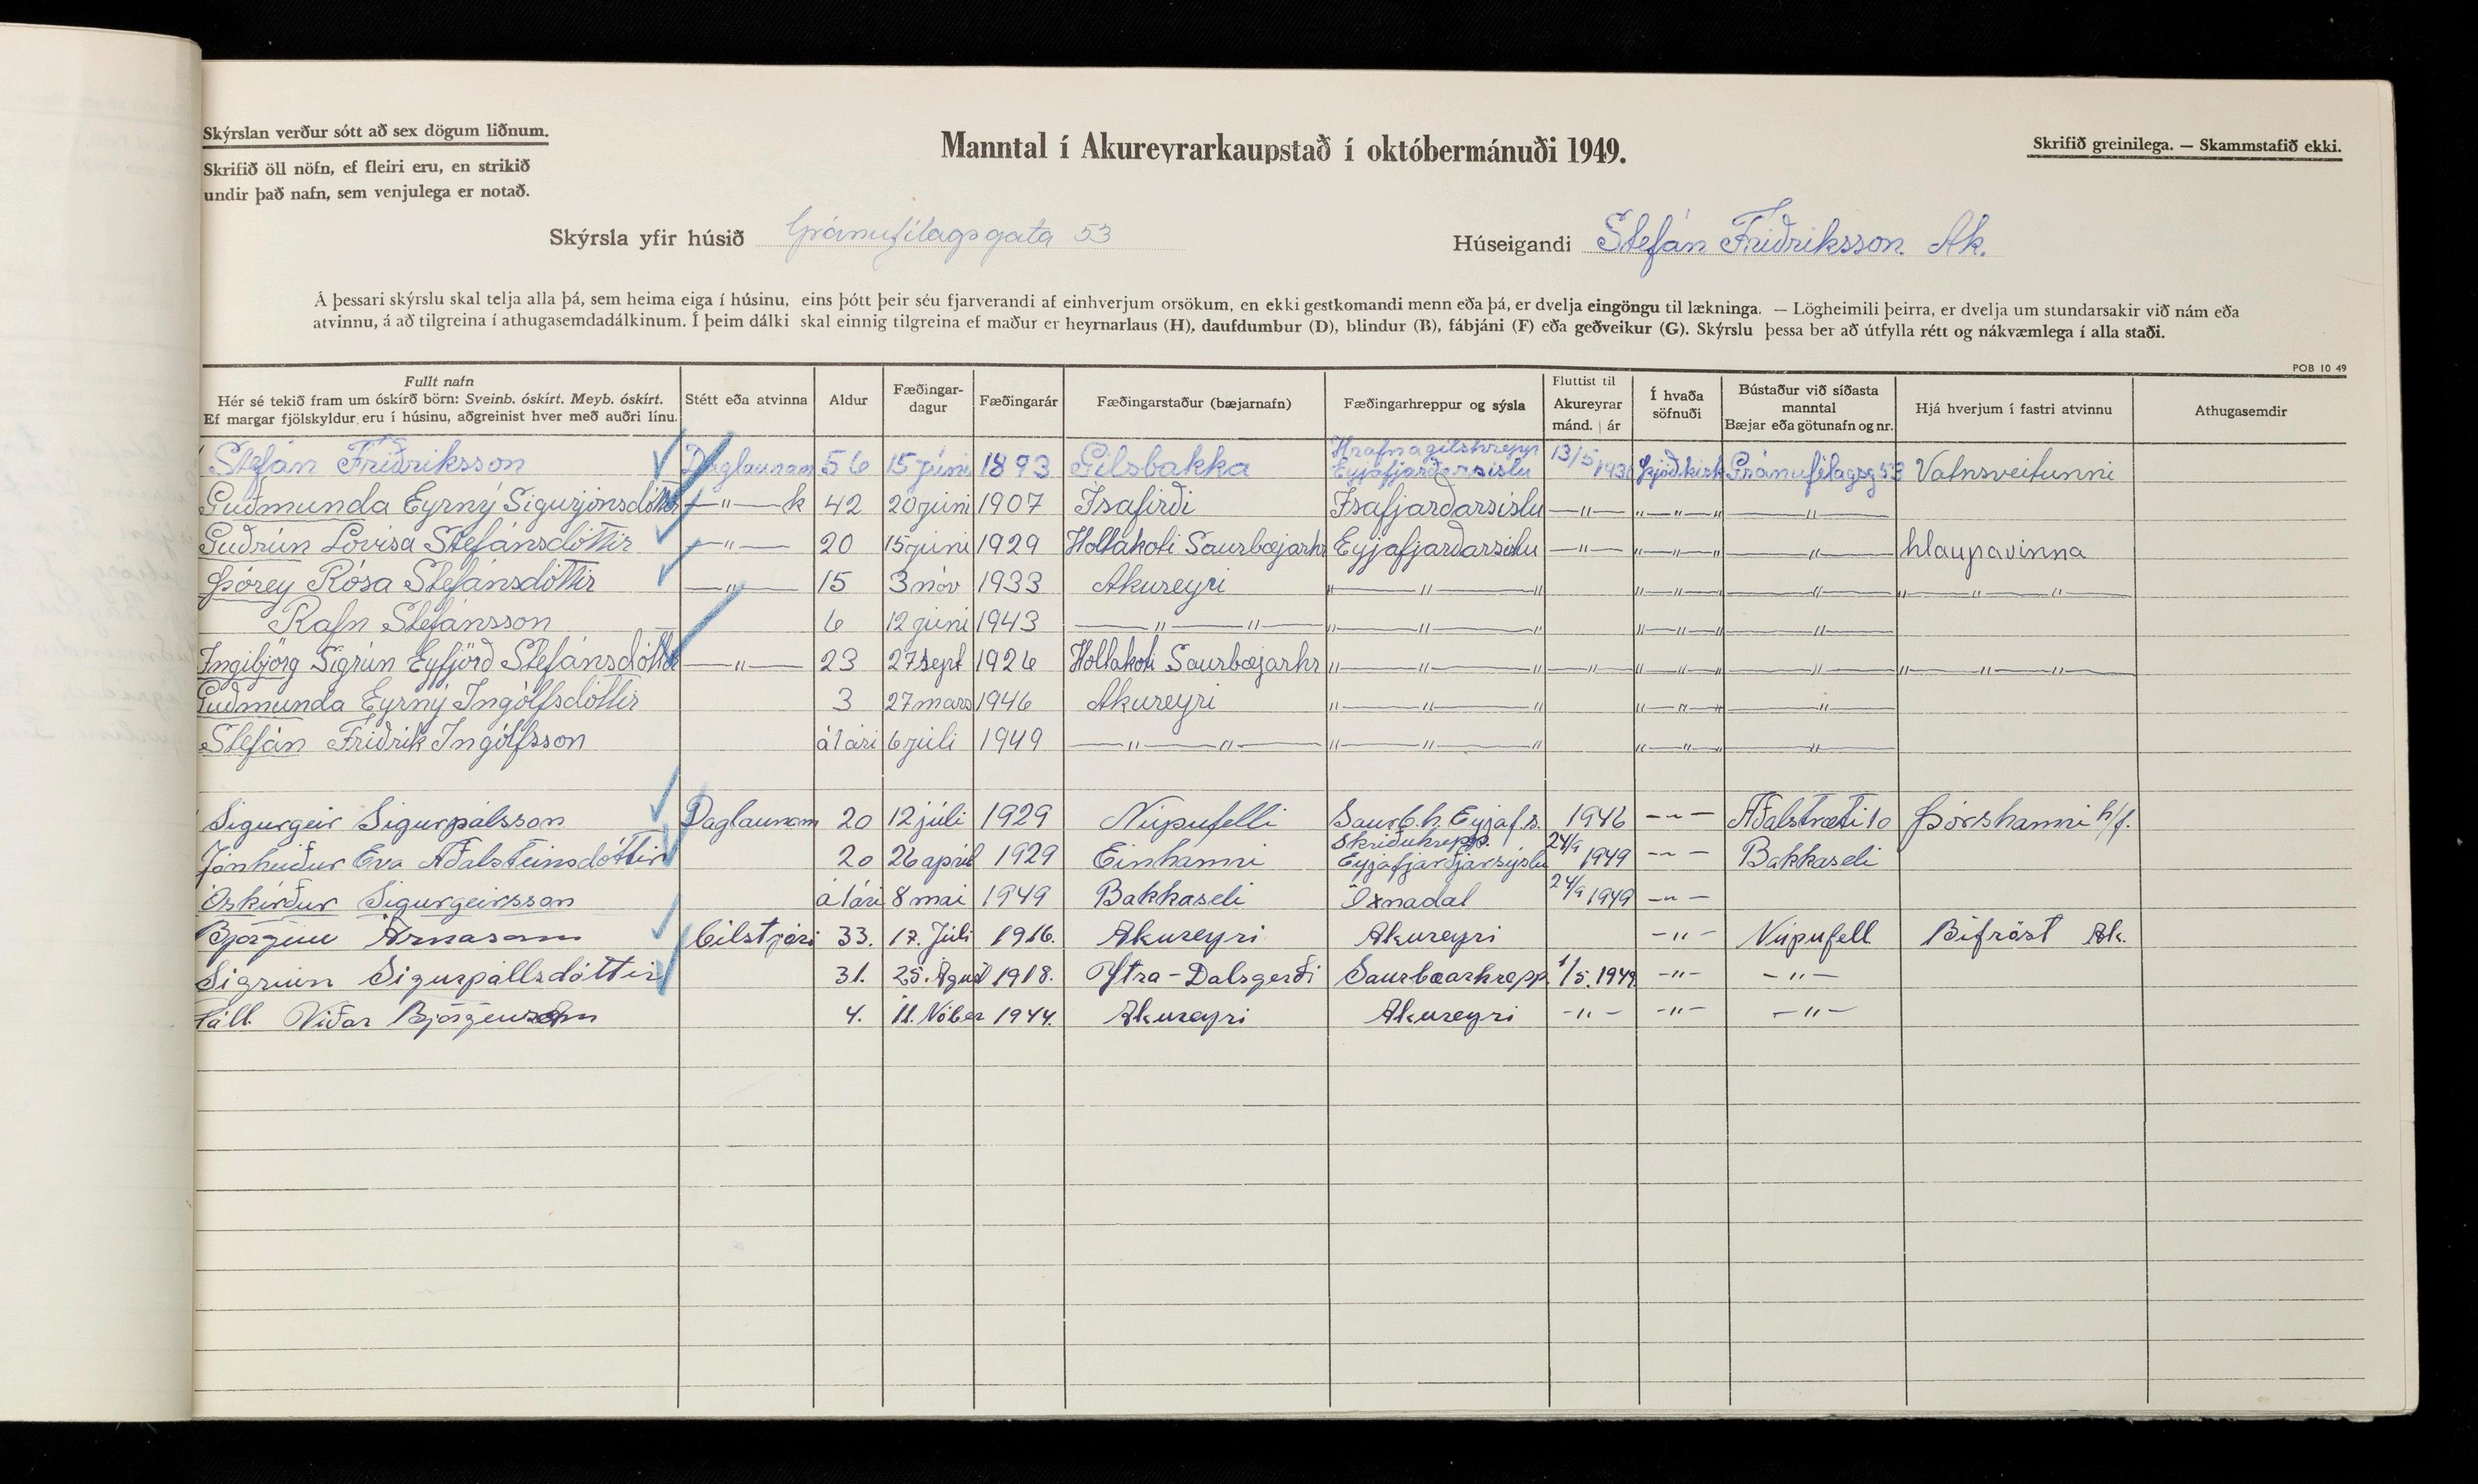 Skýrslan verður sótt að sex dögum liðnum.
Skrifið öll nöfn, ef fleiri eru, en strikið
undir það nafn, sem venjulega er notað.
Manntal í Akureyrarkaupstað í októbermánuði 1949.
Skrifið greinilega. — Skammstafið ekki.
Skýrsla yfir húsið Gránufélagsgata 53
Húseigandi Stefán Friðriksson. Ak.
Á þessari skýrslu skal telja alla þá, sem heima eiga í húsinu, eins þótt þeir séu fjarverandi af einhverjum orsökum, en ekki gestkomandi menn eða þá, er dvelja eingöngu til lækninga. — Lögheimili þeirra, er dvelja um stundarsakir við nám eða
atvinnu, á að tilgreina í athugasemdadálkinum. Í þeim dálki skal einnig tilgreina ef maður er heyrnarlaus (H), daufdumbur (D), blindur (B), fábjáni (F) eða geðveikur (G). Skýrslu þessa ber að útfylla rétt og nákvæmlega í alla staði.
POB 10 49
Fullt nafn
Hér sé tekið fram um óskírð börn: Sveinb. óskírt. Meyb. óskírt.
Ef margar fjölskyldur eru í húsinu, aðgreinist hver með auðri línu.
Stétt eða atvinna
Aldur
Fæðingar-
dagur
Fæðingarár
Fæðingarstaður (bæjarnafn)
Fæðingarhreppur og sýsla
Fluttist til
Akureyrar
mánd. | ár
Í hvaða
söfnuði
Bústaður við síðasta
manntal
Bæjar eða götunafn og nr.
Hjá hverjum í fastri atvinnu
Athugasemdir
Stefán Friðriksson Daglaunam 56 15 júni 1893 Gilsbakka Hrafnagilshrepp Eyjafjarðarsislu 13/5 1930 þjóðkirk Gránufélagsg 53 Vatnsveitunni
Guðmunda Eyrný Sigurjónsdóttir —"— k 42 20 júni 1907 Ísafirði Ísafjarðarsislu —"— "—"—" —"—
Guðrún Lovísa Stefánsdóttir —"— 20 15 júni 1929 Holtakoti Saurbæjarhr Eyjafjarðarsislu —"— "—"—" —"— hlaupavinna
Þórey Rósa Stefánsdóttir —"— 15 3 nóv 1933 Akureyri "—"—" "—"—" —"— "—"—"—
Rafn Stefánsson 6 12 júni 1943 —"—"— "—"—" "—"—" —"—
Ingibjörg Sigrún Eyfjörð Stefánsdóttir —"— 23 27 sept 1926 Holtakoti Saurbæjarhr "—"—" —"— "—"—" —"— "—"—"—
Guðmunda Eyrný Ingólfsdóttir 3 27 mars 1946 Akureyri "—"—" "—"—" —"—
Stefán Friðrik Ingólfsson á 1 ári 6 júli 1949 —"—"— "—"—" "—"—" —"—
Sigurgeir Sigurpálsson Daglaunam 20 12 júlí 1929 Núpufelli Saurb.h. Eyjaf.s. 1946 —"— Aðalstræti 10 Þórshamri h/f.
Jónheiður Eva Aðalsteinsdóttir 20 26 apríl 1929 Einhamri Skriðuhrepp. Eyjafjarðjarsýslu 24/9 1949 —"— Bakkaseli
Óskírður Sigurgeirsson á 1 ári 8 mai 1949 Bakkaseli Öxnadal 24/9 1949 —"—
Björgvin Árnason bílstjóri 33. 17. Júlí 1916. Akureyri Akureyri —"— Núpufell Bifröst Ak.
Sigrún Sigurpálsdóttir 31. 25. Ágúst 1918. Ytra-Dalsgerði Saurbæarhrepp. 1/5. 1949. —"— —"—
Páll Viðar Björgvinsson 4. 11. Nóber 1944. Akureyri Akureyri —"— —"— —"—